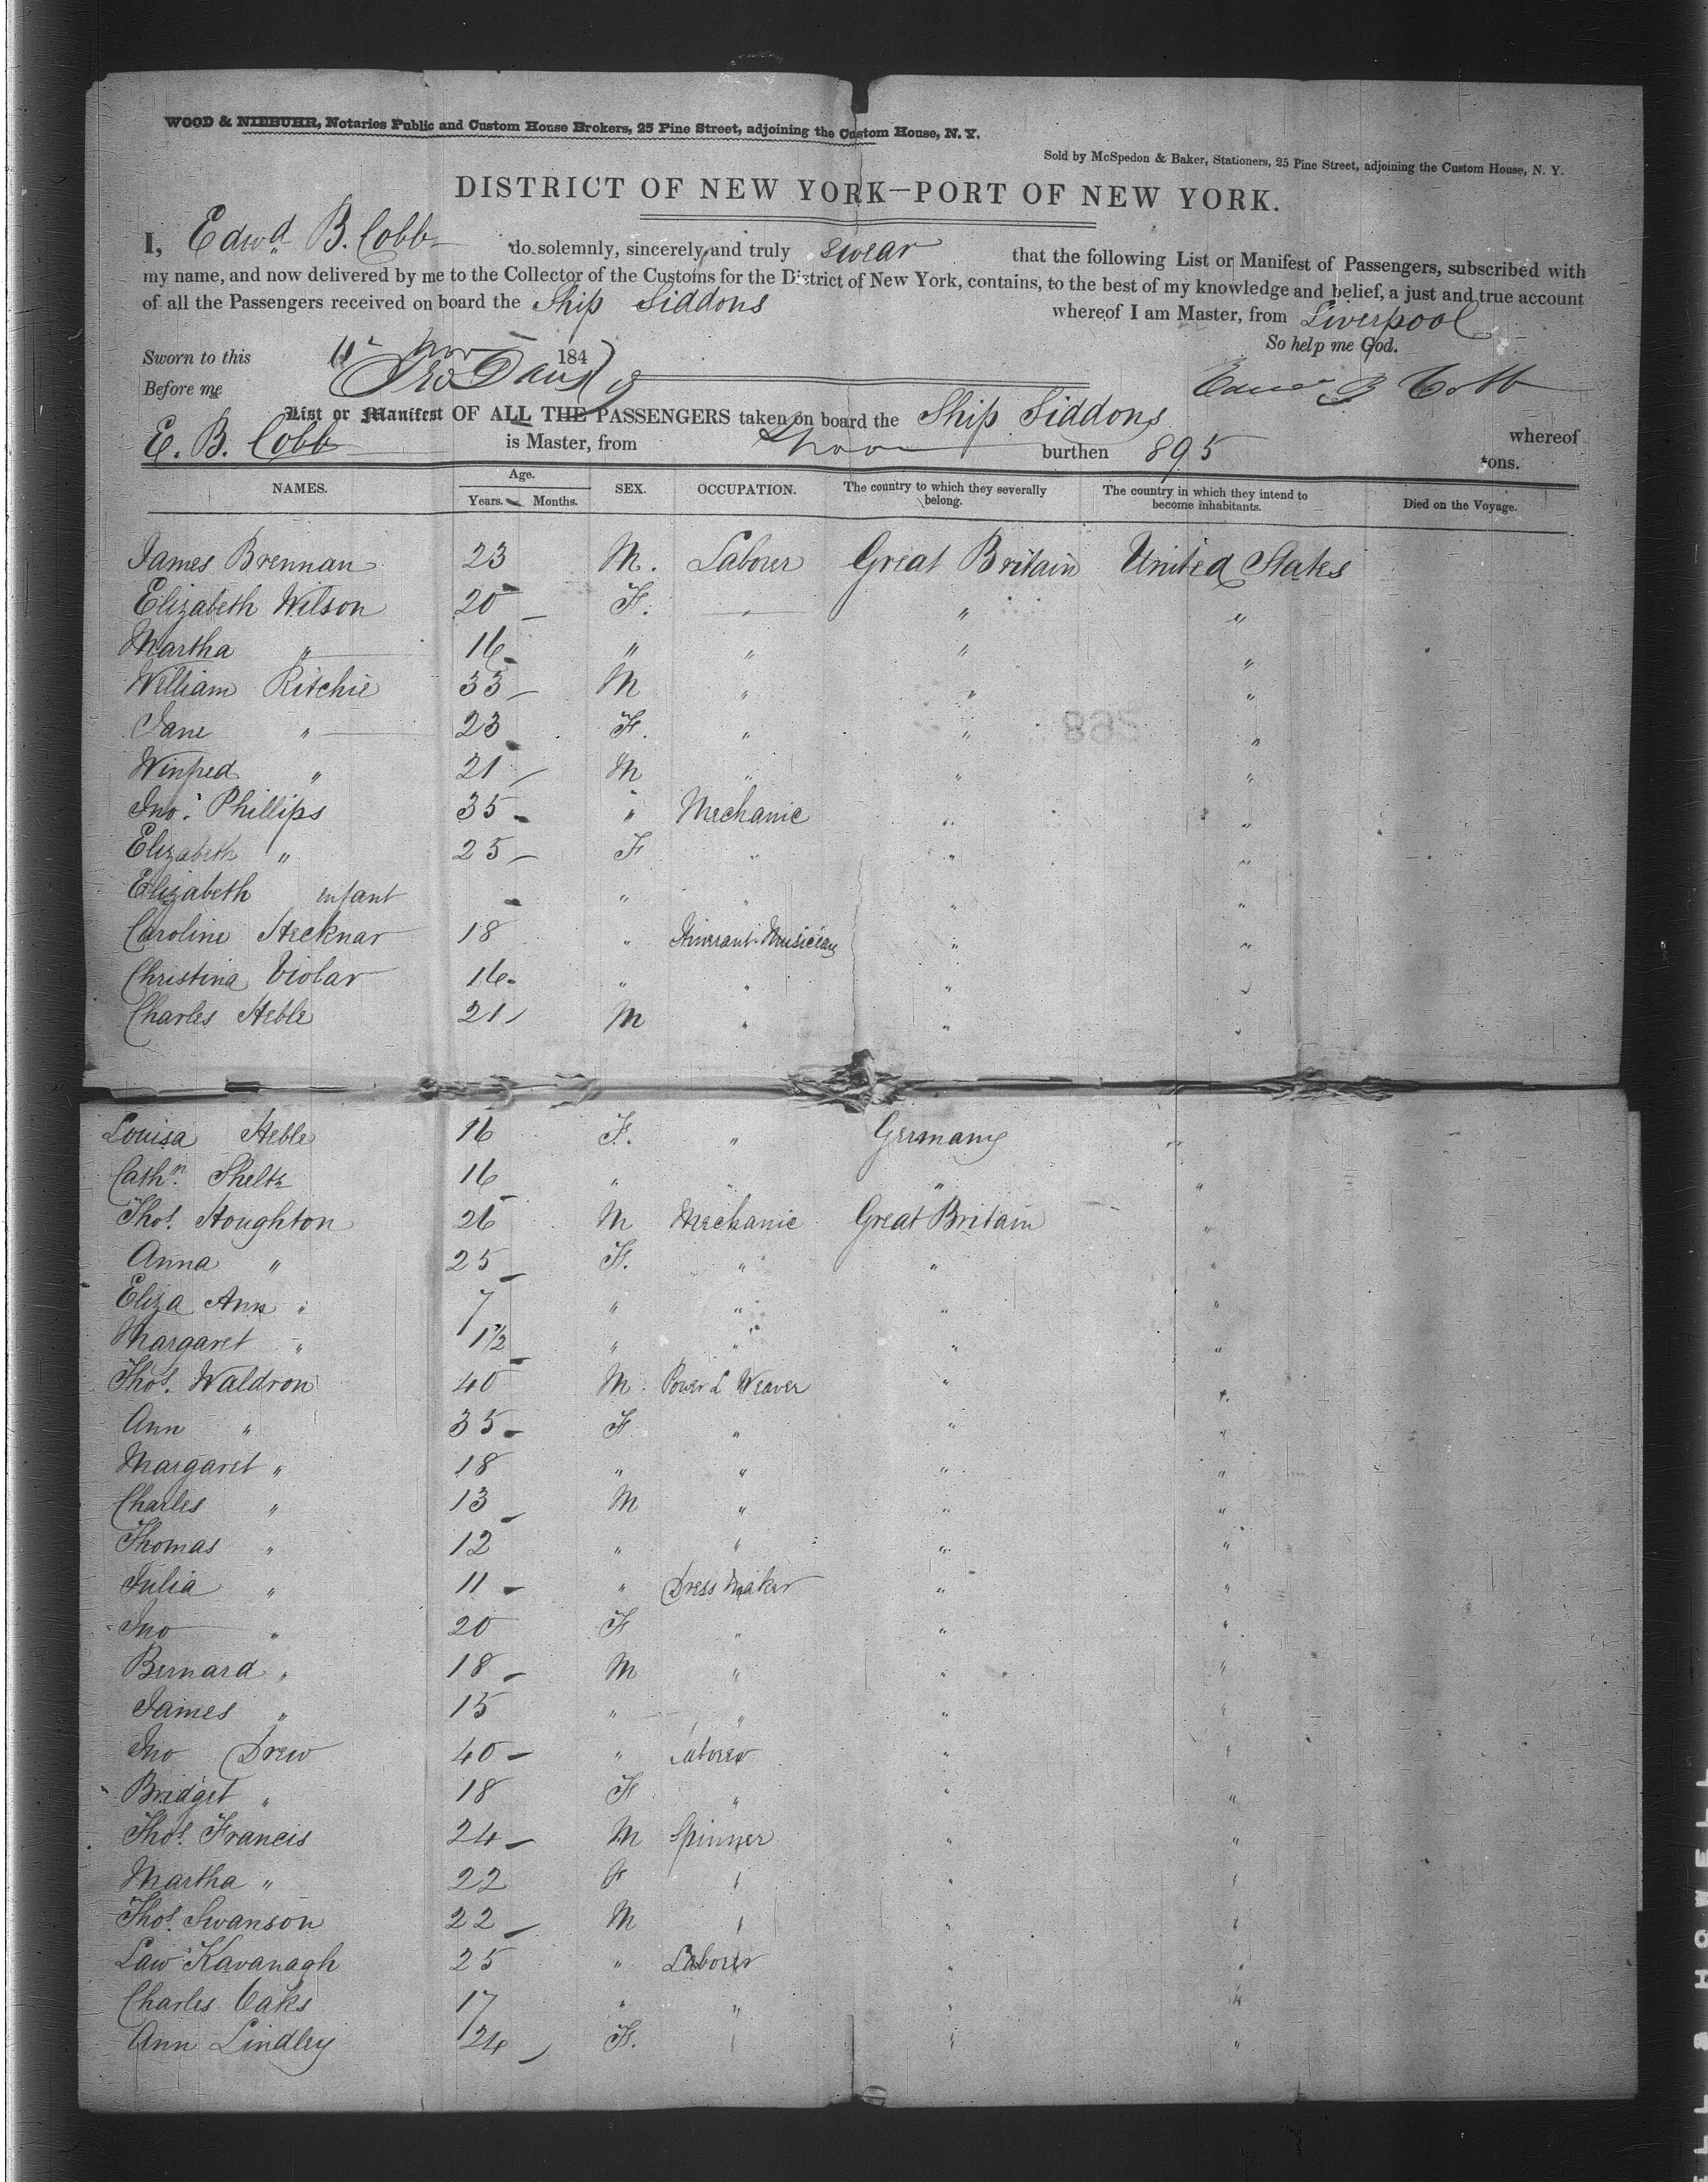 WOOD & NIEBUHR, Notaries Public and Custom House Brokers, 25 Pine Street, adjoining the Custom House, N. Y.
Sold by McSpedon & Baker, Stationers, 25 Pine Street, adjoining the Custom House, N. Y.
DISTRICT OF NEW YORK—PORT OF NEW YORK.
I, Edwd B. Cobb do solemnly, sincerely and truly swear that the following List or Manifest of Passengers, subscribed with
my name, and now delivered by me to the Collector of the Customs for the District of New York, contains, to the best of my knowledge and belief, a just and true account
of all the Passengers received on board the Ship Siddons whereof I am Master, from Liverpool
So help me God.
Sworn to this Nov 184
Before me
Edwd B Cobb
List or Manifest OF ALL THE PASSENGERS taken on board the Ship Siddons whereof
E. B. Cobb is Master, from burthen 895 tons.
NAMES. Age. Years. Months. SEX. OCCUPATION. The country to which they severally belong. The country in which they intend to become inhabitants. Died on the Voyage.
James Brennan 23 M. Laborer Great Britain United States
Elizabeth Wilson 20 F. " "
Martha " 16 " " " "
William Ritchie 33 M " " "
Jane " 23 F. " " "
Winfred " 21 M " " "
Jno. Phillips 35 " Mechanic " "
Elizabeth " 25 F " " "
Elizabeth infant " " " "
Caroline Hecknar 18 " Itinerant Musician " "
Christina Viobar 16 " " " "
Charles Heble 21 M " " "
Louisa Heble 16 F. " Germany "
Cathn. Sheltz 16 " " " "
Thos. Houghton 26 M Mechanic Great Britain "
Anna " 25 F. " " "
Eliza Ann " 7 " " " "
Margaret " 1 1/2 " " " "
Thos. Waldron 40 M Power L Weaver " "
Ann " 35 F " " "
Margaret " 18 " " " "
Charles " 13 M " " "
Thomas " 12 " " " "
Julia " 11 " Dress Maker " "
Jno " 20 F " " "
Bernard " 18 M " " "
James " 15 " " " "
Jno Drew 40 " Laborer " "
Bridget " 18 F " "
Thos. Francis 24 M Spinner " "
Martha " 22 F " " "
Thos. Swanson 22 M " " "
Law Kavanagh 25 " Laborer " "
Charles Oaks 17 " " " "
Ann Lindley 24 F. " " "